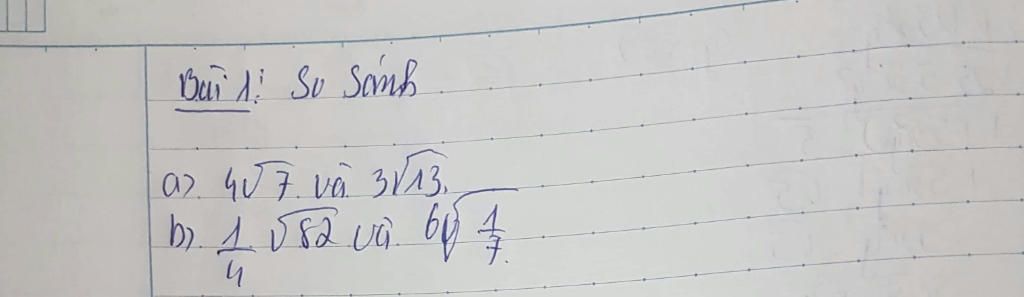 Bài 1: So Sánh
a) 4√7 và 3√13.
b) 1/4 √82 và 6√1/7.